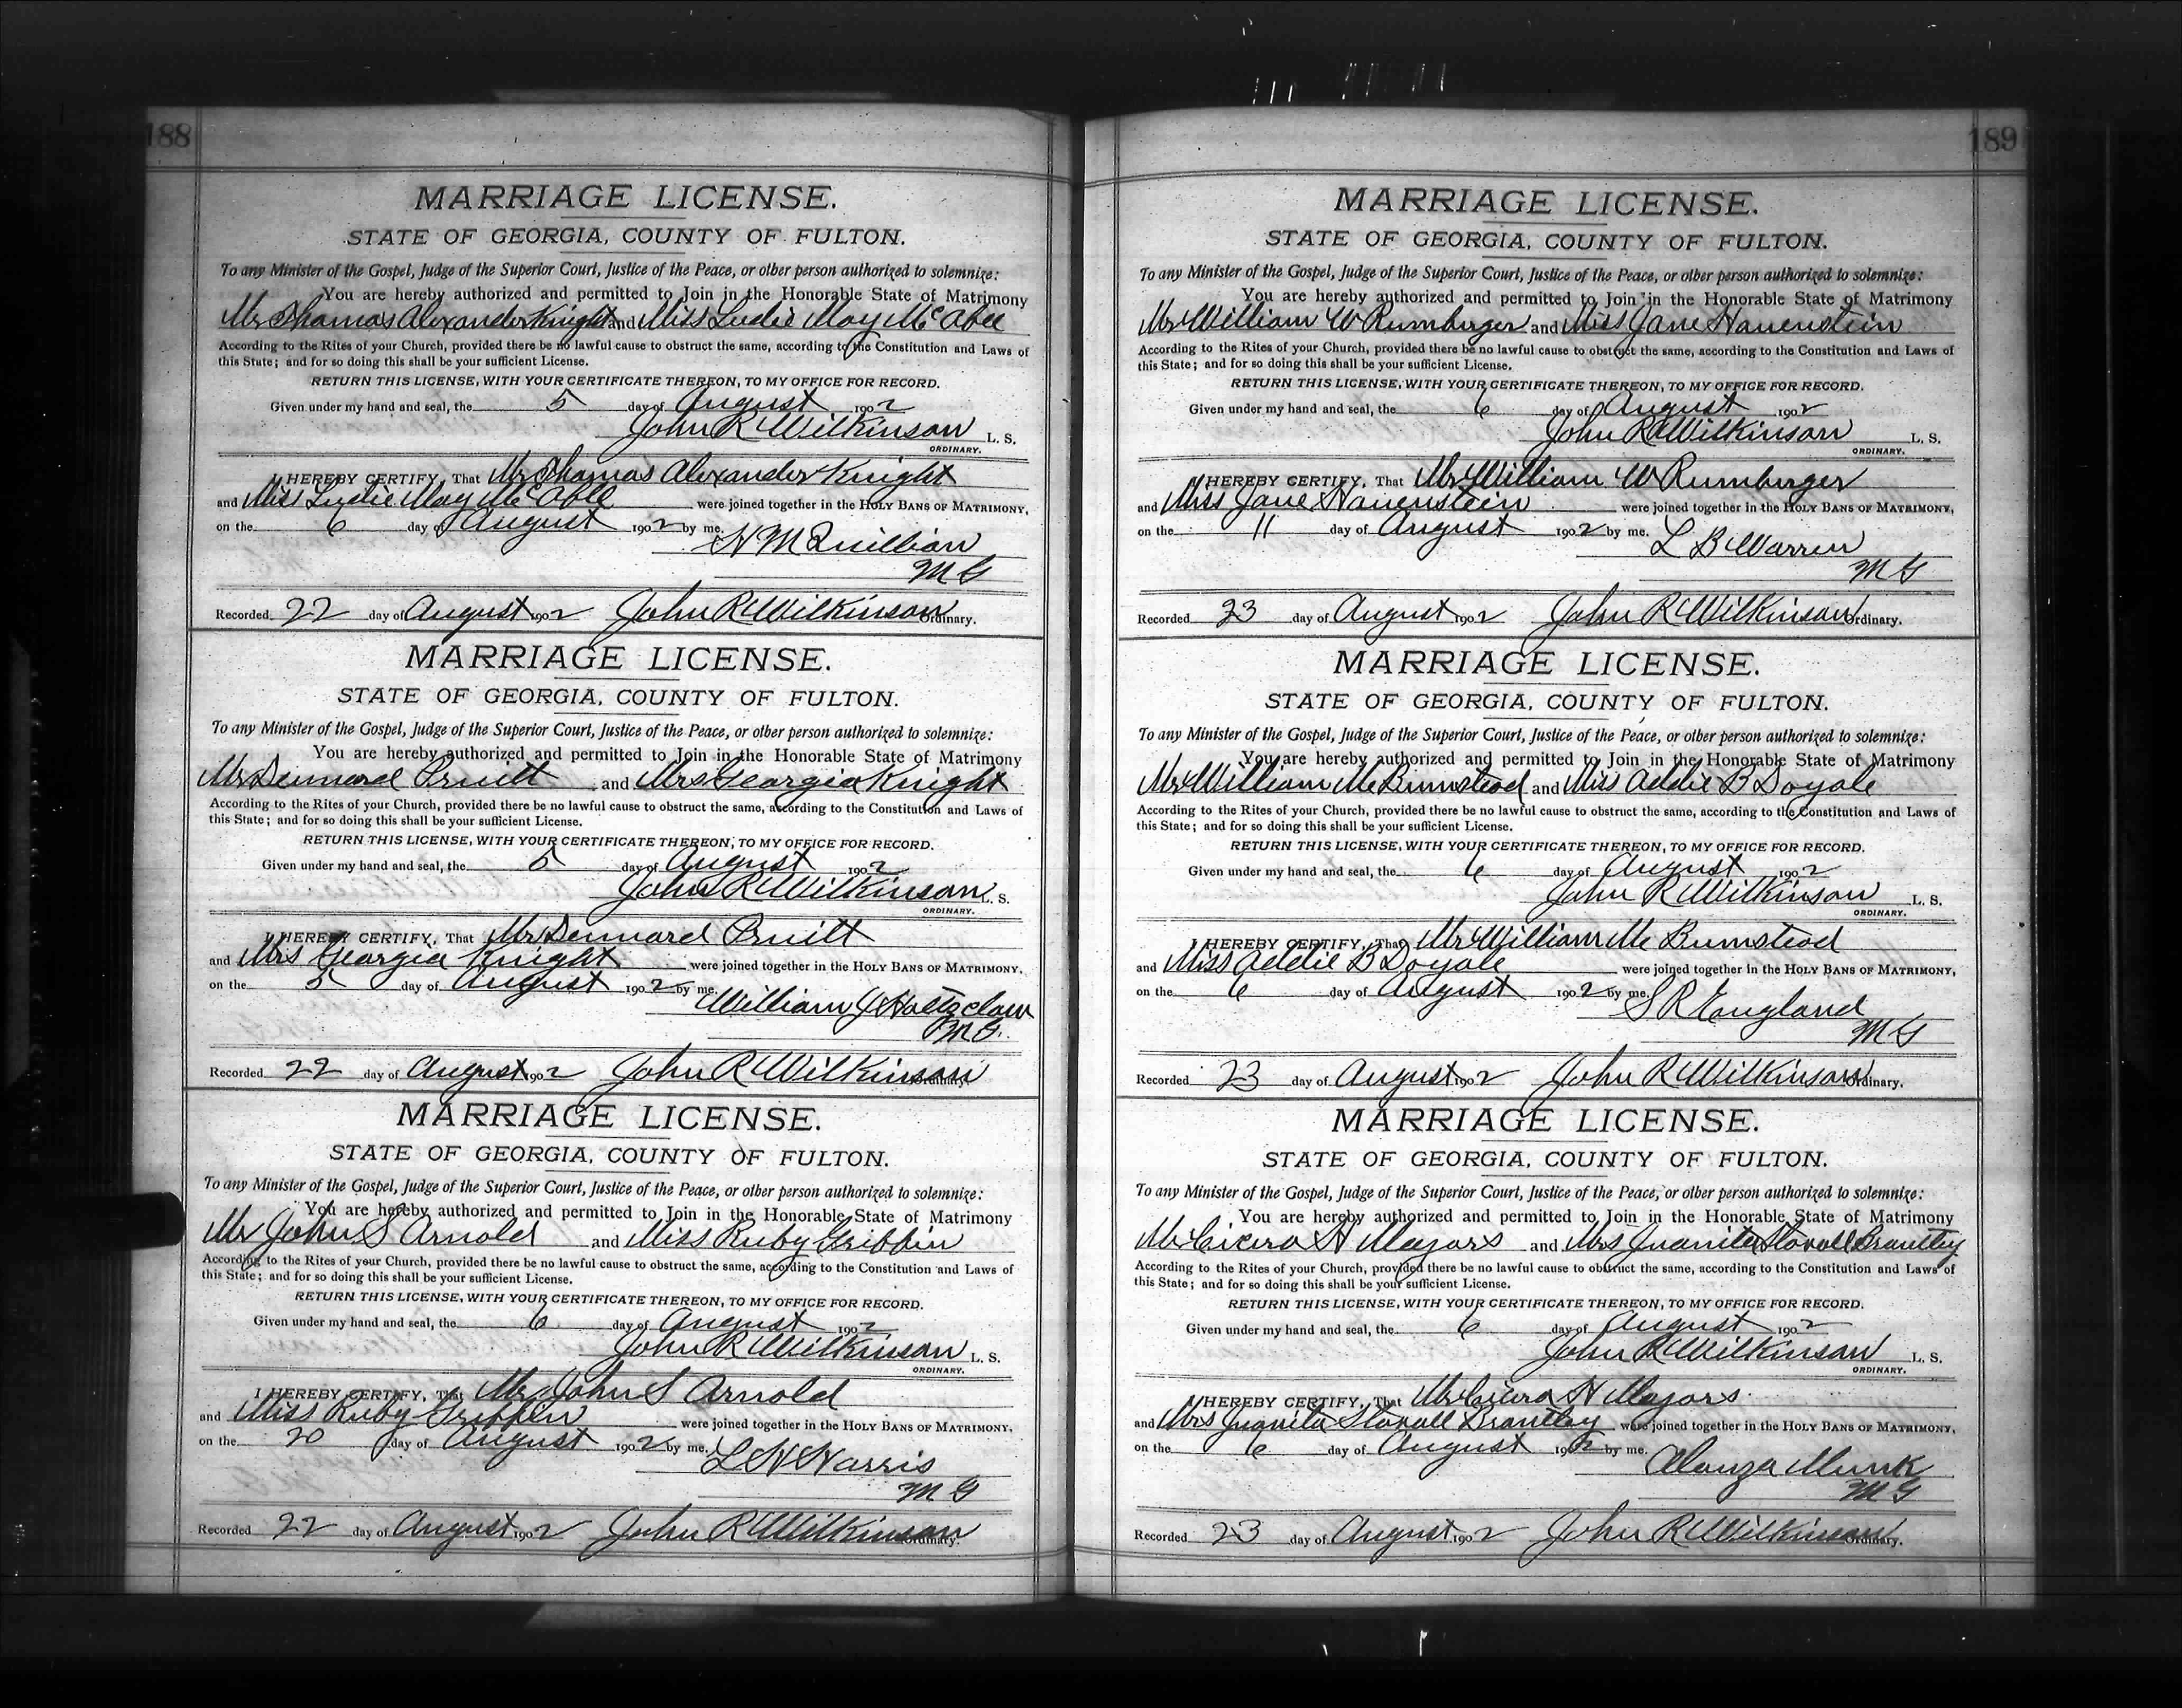 188
MARRIAGE LICENSE.
STATE OF GEORGIA, COUNTY OF FULTON.
To any Minister of the Gospel, Judge of the Superior Court, Justice of the Peace, or other person authorized to solemnize:
You are hereby authorized and permitted to Join in the Honorable State of Matrimony
Mr Thomas Alexander Knight and Miss Ludie May McAbee
According to the Rites of your Church, provided there be no lawful cause to obstruct the same, according to the Constitution and Laws of
this State; and for so doing this shall be your sufficient License.
RETURN THIS LICENSE, WITH YOUR CERTIFICATE THEREON, TO MY OFFICE FOR RECORD.
Given under my hand and seal, the 5 day of August 1902
John R Wilkinson L. S.
ORDINARY.
I HEREBY CERTIFY, That Mr Thomas Alexander Knight
and Miss Ludie May McAbee were joined together in the HOLY BANS OF MATRIMONY,
on the 6 day of August 1902 by me.
H M Quillian
M G
Recorded 22 day of August 1902 John R Wilkinson Ordinary.
MARRIAGE LICENSE.
STATE OF GEORGIA, COUNTY OF FULTON.
To any Minister of the Gospel, Judge of the Superior Court, Justice of the Peace, or other person authorized to solemnize:
You are hereby authorized and permitted to Join in the Honorable State of Matrimony
Mr Dennard Pruitt and Mrs Georgia Knight
According to the Rites of your Church, provided there be no lawful cause to obstruct the same, according to the Constitution and Laws of
this State; and for so doing this shall be your sufficient License.
RETURN THIS LICENSE, WITH YOUR CERTIFICATE THEREON, TO MY OFFICE FOR RECORD.
Given under my hand and seal, the 5 day of August 1902
John R Wilkinson L. S.
ORDINARY.
I HEREBY CERTIFY, That Mr Dennard Pruitt
and Mrs Georgia Knight were joined together in the HOLY BANS OF MATRIMONY,
on the 5 day of August 1902 by me.
William J Holtzclaw
M G.
Recorded 22 day of August 1902 John R Wilkinson Ordinary.
MARRIAGE LICENSE.
STATE OF GEORGIA, COUNTY OF FULTON.
To any Minister of the Gospel, Judge of the Superior Court, Justice of the Peace, or other person authorized to solemnize:
You are hereby authorized and permitted to Join in the Honorable State of Matrimony
Mr John S Arnold and Miss Ruby Griffin
According to the Rites of your Church, provided there be no lawful cause to obstruct the same, according to the Constitution and Laws of
this State; and for so doing this shall be your sufficient License.
RETURN THIS LICENSE, WITH YOUR CERTIFICATE THEREON, TO MY OFFICE FOR RECORD.
Given under my hand and seal, the 6 day of August 1902
John R Wilkinson L. S.
ORDINARY.
I HEREBY CERTIFY, That Mr John S Arnold
and Miss Ruby Griffin were joined together in the HOLY BANS OF MATRIMONY,
on the 20 day of August 1902 by me.
L H Harris
M G
Recorded 22 day of August 1902 John R Wilkinson Ordinary.
189
MARRIAGE LICENSE.
STATE OF GEORGIA, COUNTY OF FULTON.
To any Minister of the Gospel, Judge of the Superior Court, Justice of the Peace, or other person authorized to solemnize:
You are hereby authorized and permitted to Join in the Honorable State of Matrimony
Mr William W Rumburger and Miss Jane Hauenstein
According to the Rites of your Church, provided there be no lawful cause to obstruct the same, according to the Constitution and Laws of
this State; and for so doing this shall be your sufficient License.
RETURN THIS LICENSE, WITH YOUR CERTIFICATE THEREON, TO MY OFFICE FOR RECORD.
Given under my hand and seal, the 6 day of August 1902
John R Wilkinson L. S.
ORDINARY.
I HEREBY CERTIFY, That Mr William W Rumburger
and Miss Jane Hauenstein were joined together in the HOLY BANS OF MATRIMONY,
on the 11 day of August 1902 by me.
L B Warren
M G
Recorded 23 day of August 1902 John R Wilkinson Ordinary.
MARRIAGE LICENSE.
STATE OF GEORGIA, COUNTY OF FULTON.
To any Minister of the Gospel, Judge of the Superior Court, Justice of the Peace, or other person authorized to solemnize:
You are hereby authorized and permitted to Join in the Honorable State of Matrimony
Mr William Mc Bumstead and Miss Addie B Doyale
According to the Rites of your Church, provided there be no lawful cause to obstruct the same, according to the Constitution and Laws of
this State; and for so doing this shall be your sufficient License.
RETURN THIS LICENSE, WITH YOUR CERTIFICATE THEREON, TO MY OFFICE FOR RECORD.
Given under my hand and seal, the 6 day of August 1902
John R Wilkinson L. S.
ORDINARY.
I HEREBY CERTIFY, That Mr William Mc Bumstead
and Miss Addie B Doyale were joined together in the HOLY BANS OF MATRIMONY,
on the 6 day of August 1902 by me.
S R England
M G
Recorded 23 day of August 1902 John R Wilkinson Ordinary.
MARRIAGE LICENSE.
STATE OF GEORGIA, COUNTY OF FULTON.
To any Minister of the Gospel, Judge of the Superior Court, Justice of the Peace, or other person authorized to solemnize:
You are hereby authorized and permitted to Join in the Honorable State of Matrimony
Mr Cicero H Majors and Mrs Juanita Stovall Brantley
According to the Rites of your Church, provided there be no lawful cause to obstruct the same, according to the Constitution and Laws of
this State; and for so doing this shall be your sufficient License.
RETURN THIS LICENSE, WITH YOUR CERTIFICATE THEREON, TO MY OFFICE FOR RECORD.
Given under my hand and seal, the 6 day of August 1902
John R Wilkinson L. S.
ORDINARY.
I HEREBY CERTIFY, That Mr Cicero H Majors
and Mrs Juanita Stovall Brantley were joined together in the HOLY BANS OF MATRIMONY,
on the 6 day of August 1902 by me.
Alonza Munk
M G
Recorded 23 day of August 1902 John R Wilkinson Ordinary.